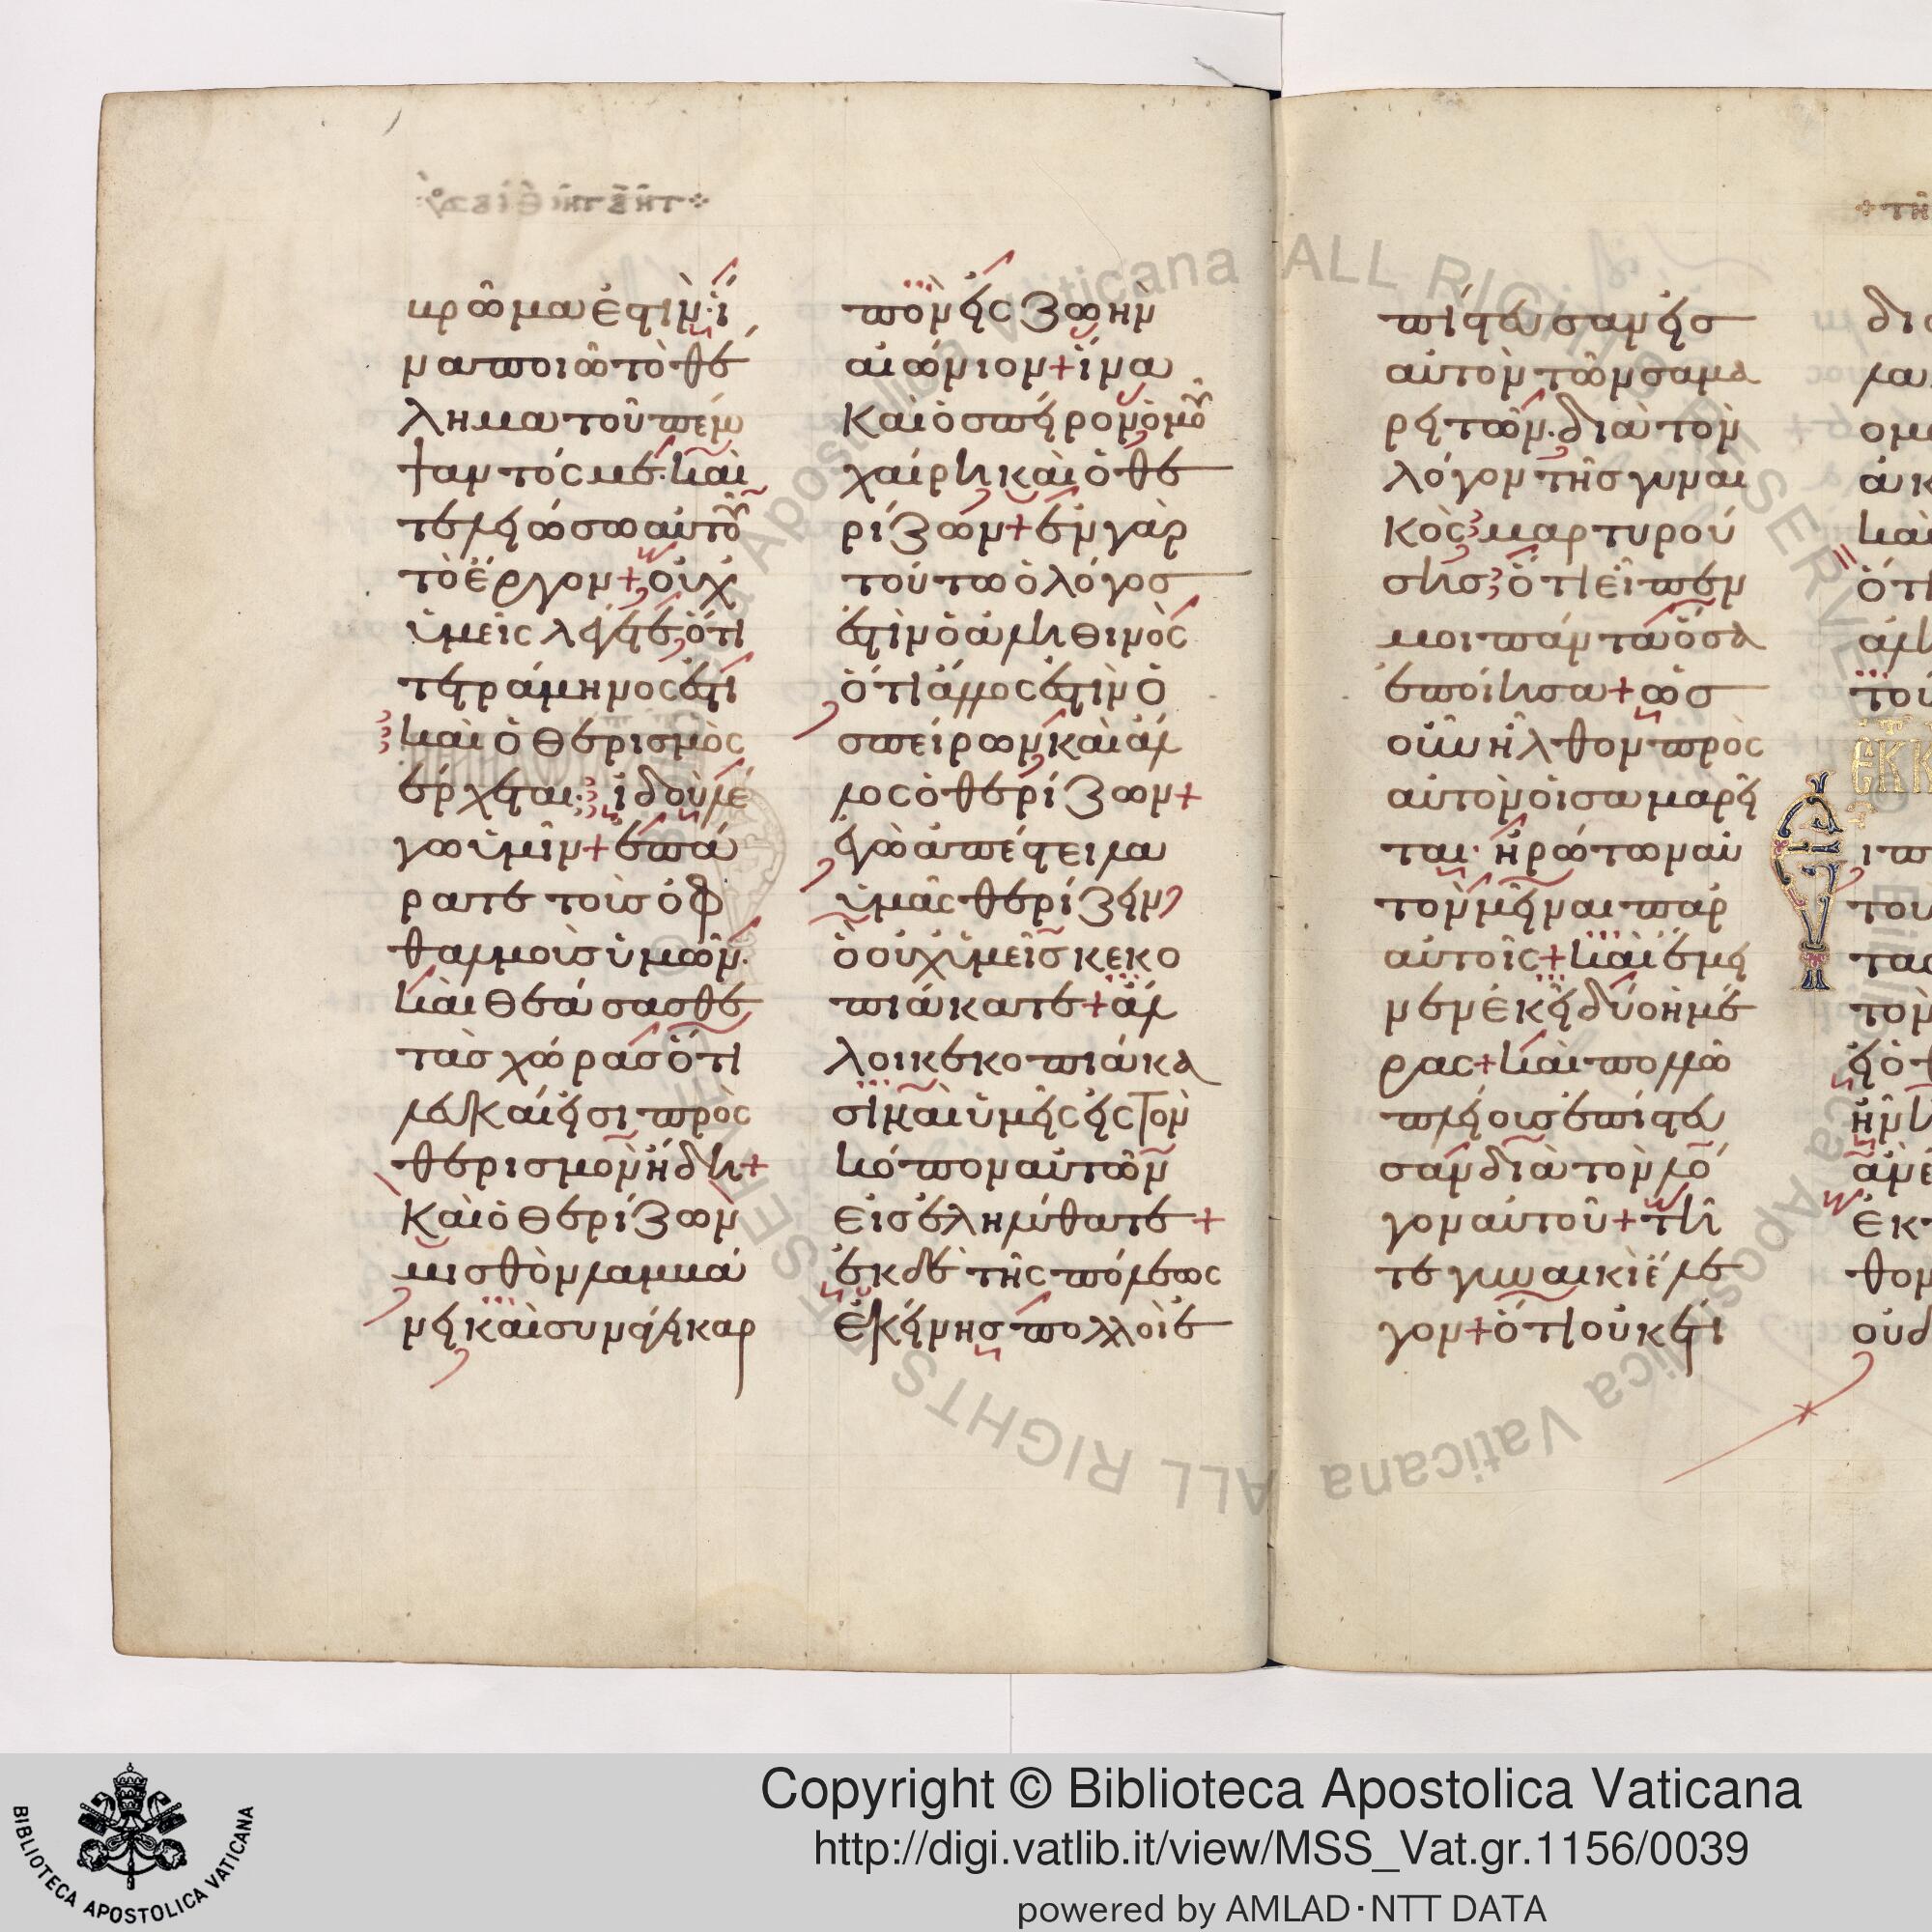 κρῶμα ἐστὶν· ἵ
να ποιῶ τὸ θέ
λημα τοῦ πέμ
ψαντός με· καὶ
τελειώσω αὐτοῦ
τὸ ἔργον + οὐχ
ὑμεῖς λέγετε ὅτι
τετράμηνος ἐστὶ
καὶ ὁ θερισμὸς
ἔρχεται· ἰδοὺ λέ
γω ὑμῖν + ἐπά
ρατε τοὺς ὀφ
θαλμοὺς ὑμῶν·
καὶ θεάσασθε
τὰς χώρας ὅτι
λευκαί εἰσι πρὸς
θερισμὸν ἤδη +
καὶ ὁ θερίζων
μισθὸν λαμβά
νει καὶ συνάγει καρ
πὸν εἰς ζωὴν
αἰώνιον + ἵνα
καὶ ὁ σπείρων ὁμοῦ
χαίρη καὶ ὁ θε
ρίζων + ἐν γὰρ
τούτω ὁ λόγος
ἐστὶν ὁ ἀληθινὸς
ὅτι ἄλλος ἐστὶν ὁ
σπείρων καὶ ἄλ
λος ὁ θερίζων +
ἐγὼ ἀπέστειλα
ὑμᾶς θερίζειν
ὃ οὐχ ὑμεῖς κεκο
πιάκατε + ἄλ
λοι κεκοπιάκα
σι καὶ ὑμεῖς εἰς τὸν
κόπον αὐτῶν
εἰσεληλύθατε +
ἐκ δὲ τῆς πόλεως
ἐκείνης πολλοὶ ἐ
πίστευσαν εἰς
αὐτὸν τῶν σαμα
ρειτῶν· διὰ τὸν
λόγον τῆς γυναι
κὸς μαρτυρού
σης ὅτι εἶπεν
μοι πάντα ὅσα
ἐποίησα + ὡς
οὖν ἦλθον πρὸς
αὐτὸν οἱ σαμαρεῖ
ται· ἠρώτων αὐ
τὸν μεῖναι παρ
αὐτοῖς + καὶ ἔμει
νεν ἐκεῖ δύο ἡμέ
ρας + καὶ πολλῶ
πλείους ἐπίστευ
σαν διὰ τὸν λό
γον αὐτοῦ + τῆ
τε γυναικὶ ἔλε
γον + ὅτι οὐκ ἔτι
Copyright © Biblioteca Apostolica Vaticana
http://digi.vatlib.it/view/MSS_Vat.gr.1156/0039
powered by AMLAD·NTT DATA
BIBLIOTECA APOSTOLICA VATICANA